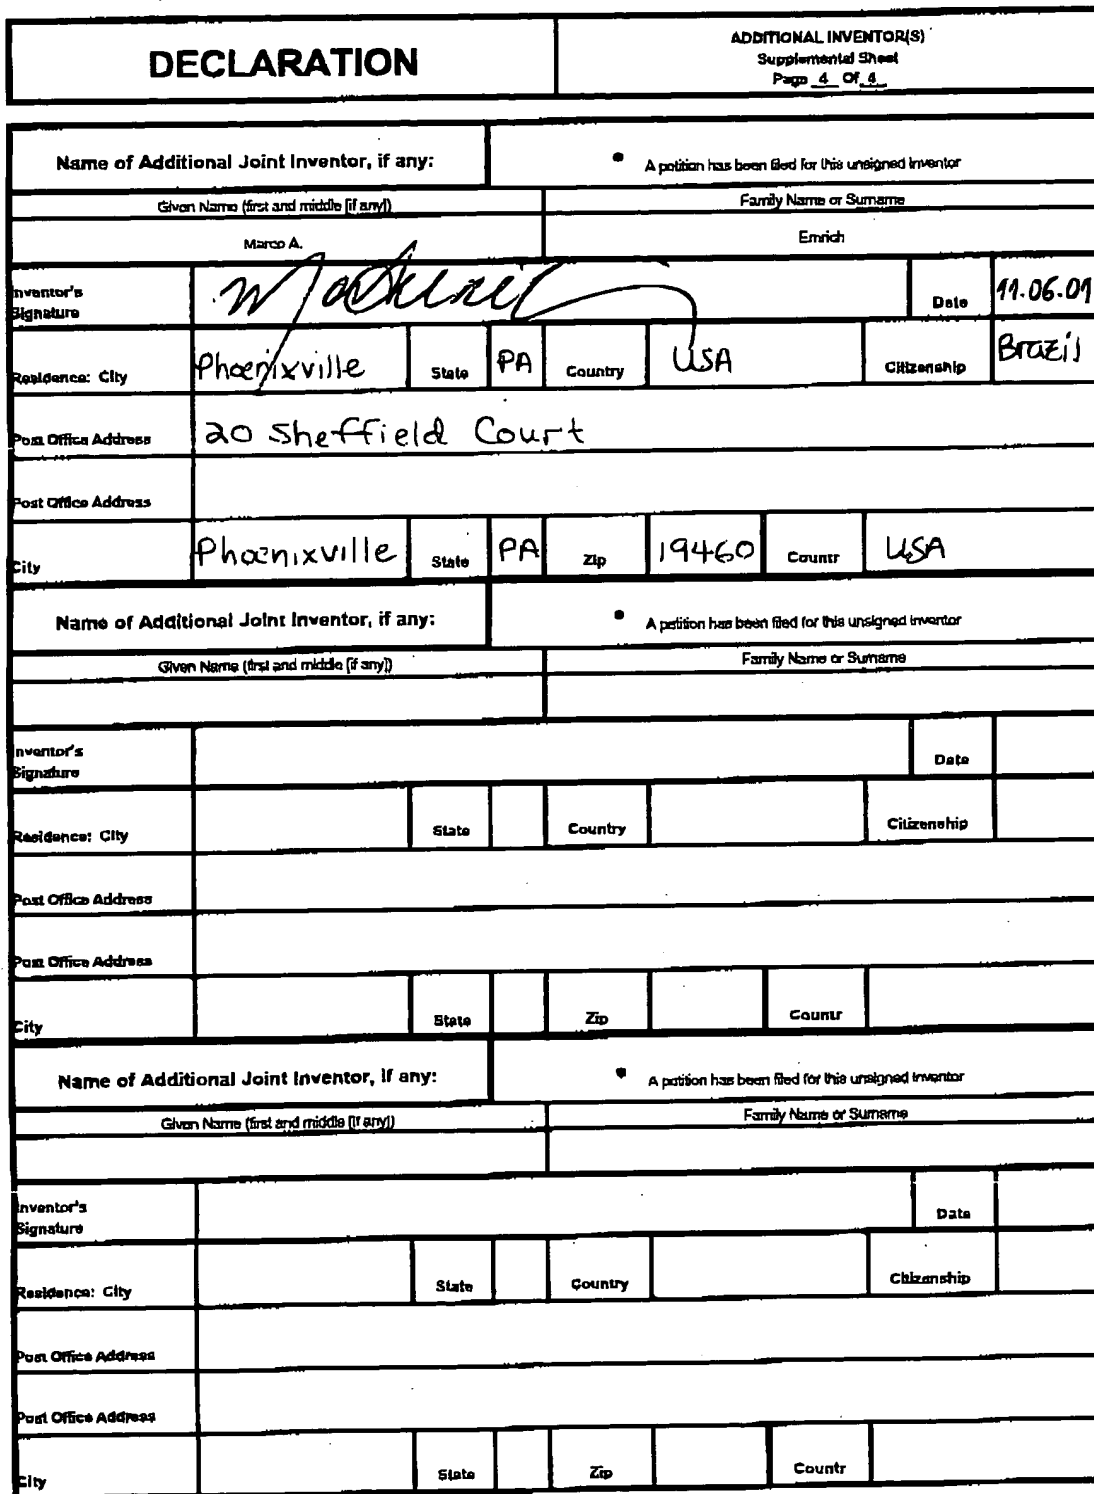 DECLARATION
ADDITIONAL INVENTOR(S)
Supplemental Sheet
Page 4 Of 4
Name of Additional Joint Inventor, if any:
A petition has been filed for this unsigned inventor
Given Name (first and middle [if any])
Family Name or Surname
Marco A.
Emrich
Inventor's
Signature
Date
11.06.01
Residence: City
Phoenixville
State
PA
Country
USA
Citizenship
Brazil
Post Office Address
20 Sheffield Court
Post Office Address
City
Phoenixville
State
PA
Zip
19460
Countr
USA
Name of Additional Joint Inventor, if any:
A petition has been filed for this unsigned inventor
Given Name (first and middle [if any])
Family Name or Surname
Inventor's
Signature
Date
Residence: City
State
Country
Citizenship
Post Office Address
Post Office Address
City
State
Zip
Countr
Name of Additional Joint Inventor, if any:
A petition has been filed for this unsigned inventor
Given Name (first and middle [if any])
Family Name or Surname
Inventor's
Signature
Date
Residence: City
State
Country
Citizenship
Post Office Address
Post Office Address
City
State
Zip
Countr